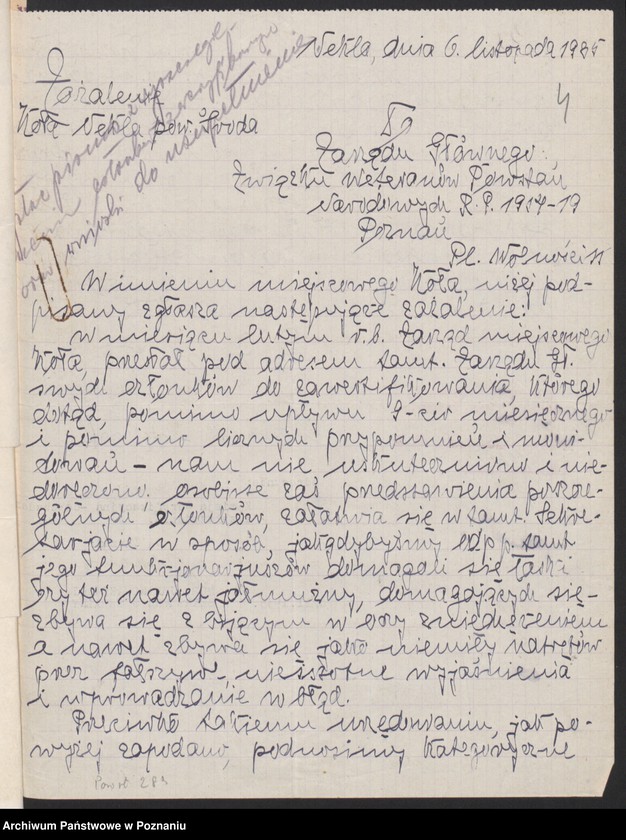 Nekla, dnia 6. listopada 1935
4
Zażalenie
Koła Nekla pow. Środa
do uzupełnienia
Do
Zarządu Głównego
Związku Weteranów Powstań
Narodowych R.P. 1914-19
Poznań
Pl. Wolności
W imieniu miejscowego Koła, niżej pod-
pisany zgłasza następujące zażalenie:
W miesiącu lutym r.b. Zarząd miejscowego
Koła, przesłał pod adresem tamt. Zarządu Gł.
swych członków do zaweryfikowania, którego
dotąd, pomimo upływu 9-cio miesięcznego
i pomimo licznych przypomnień i moni-
towań – nam nie uskuteczniono i nie-
doręczono, osobiste zaś przedstawienia poszcze-
gólnych członków, załatwia się w tamt. Sekre-
tarjacie w sposób, jakgdybyśmy od pp. tamt
jego funkcjonarjuszów domagali się łaski
czy też nawet jałmużny, domagających się –
zbywa się z bijącym w oczy zniechęceniem
a nawet zbywa się jako niemiłych natrętów
przez fałszywe, nieistotne wyjaśnienia
i wprowadzanie w błąd.
Przeciwko takiemu urzędowaniu, jak po-
wyżej zapodano, podnosimy kategoryczne
Archiwum Państwowe w Poznaniu